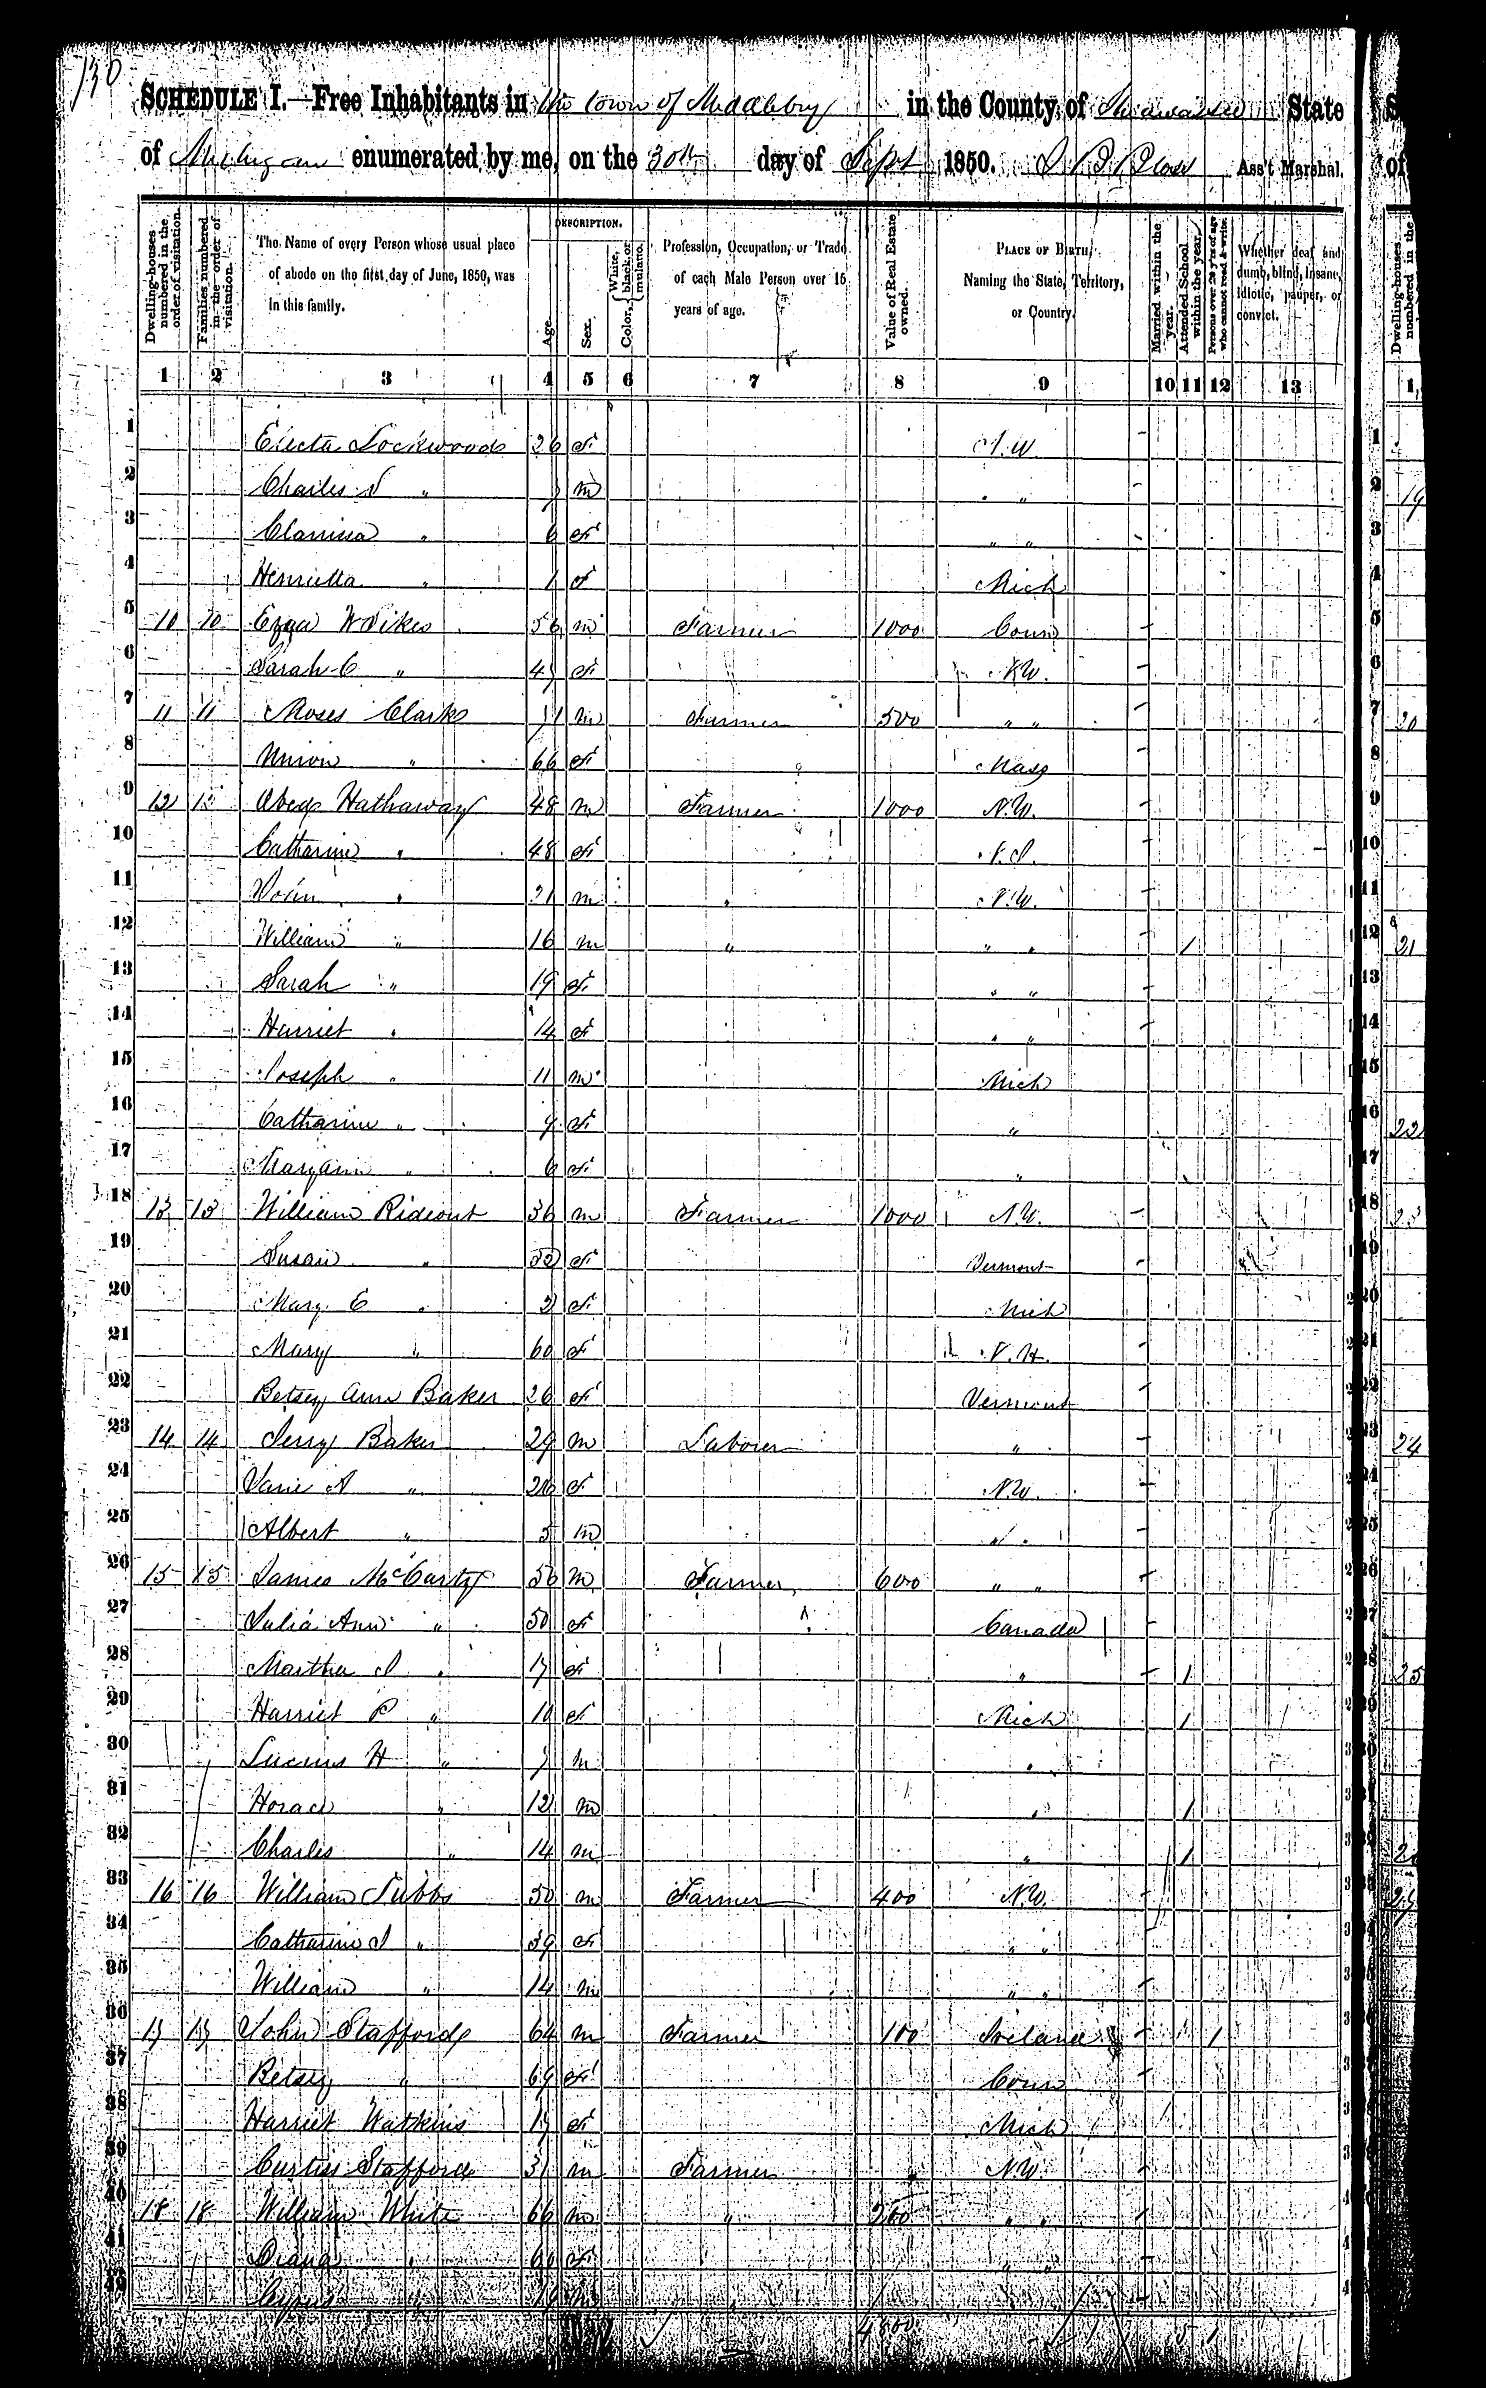 130
SCHEDULE I.—Free Inhabitants in the town of Middlebury in the County of Shiawassee State
of Michigan enumerated by me, on the 30th day of Sept 1850. Ass't Marshal.
Dwelling-houses numbered in the order of visitation.
Families numbered in the order of visitation.
The Name of every Person whose usual place of abode on the first day of June, 1850, was in this family.
DESCRIPTION.
Age.
Sex.
Color, White, black, or mulatto.
Profession, Occupation, or Trade of each Male Person over 15 years of age.
Value of Real Estate owned.
PLACE OF BIRTH, Naming the State, Territory, or Country.
Married within the year.
Attended School within the year.
Persons over 20 y'rs of age who cannot read & write.
Whether deaf and dumb, blind, insane, idiotic, pauper, or convict.
1 2 3 4 5 6 7 8 9 10 11 12 13
1 Electa Lockwood 26 F N.Y.
2 Charles " 7 M " "
3 Clarrissa " 6 F " "
4 Henrietta " 1 F Mich
5 10 10 Ezra 56 M Farmer 1000 Conn
6 Sarah C " 47 F N.Y.
7 11 11 Moses Clark 71 M Farmer 500 " "
8 Union " 66 F Mass
9 12 12 Obed Hathaway 48 M Farmer 1000 N.Y.
10 Catharine " 48 F
11 John " 21 M " N.Y.
12 William " 16 M " " " 1
13 Sarah " 19 F " "
14 Harriet " 14 F " "
15 Joseph " 11 M Mich
16 Catharine " 9 F "
17 Maryann " 6 F "
18 13 13 William Rideout 36 M Farmer 1000 N.Y.
19 Susan " F Vermont
20 Mary E " 2 F Mich
21 Mary " 60 F N.H.
22 Betsey Ann Baker 26 F Vermont
23 14 14 Jerry Baker 29 M Laborer "
24 Jane A " 26 F N.Y.
25 Albert " 5 M " "
26 15 15 James McCarty 56 M Farmer 600 " "
27 Julia Ann " 50 F Canada
28 Martha J " 17 F " 1
29 Harriet P " 10 F Mich 1
30 Lucius H " 7 M "
31 Horace " 12 M " 1
32 Charles " 14 M " 1
33 16 16 William Tubbs 50 M Farmer 400 N.Y.
34 Catharine J " 39 F " "
35 William " 14 M " "
36 17 17 John Stafford 64 M Farmer 100 Ireland 1
37 Betsey " 69 F Conn
38 Harriet Watkins 17 F Mich
39 Curtis Stafford 31 M Farmer N.Y.
40 18 18 William White 66 M " 200 " "
41 Diana " 60 F " "
42 Cyrus " M
4800 5 1